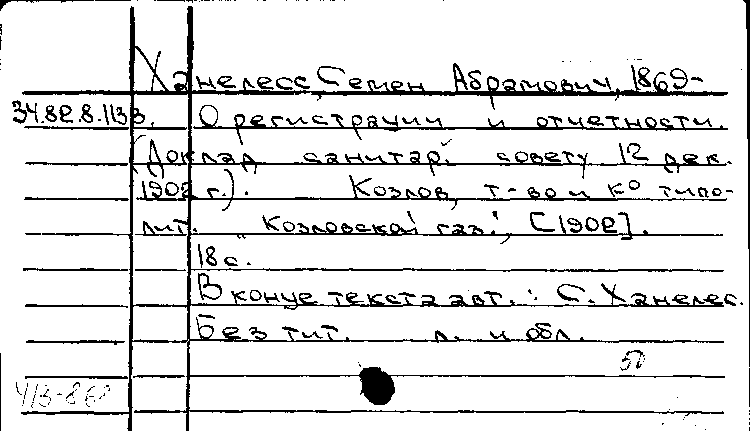 Ханелесс, Семен Абрамович, 1869-
34.82.8.113 в. О регистрации и отчетности.
(Доклад санитар. совету 12 дек.
1902 г.). Козлов, т-во и К° типо-
лит. "Козловской газ.", [1902].
18 с.
В конце текста авт.: С. Ханелес.
Без тит. л. и обл.
50